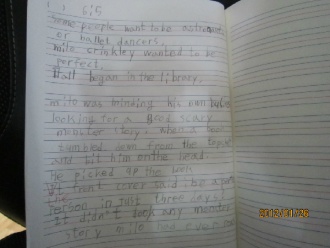 some people want take astronaut
or ballet dancers,
milo crinkley wanted to be
perfect,
itall began in the library,
milo was minding his own
looking for a good scary
monster story, when a
tumbled down from the
and hit him on the head.
He picked up the book
front cover said be a
person in just three days!
It didn't look any
story milo had
2012/01/26